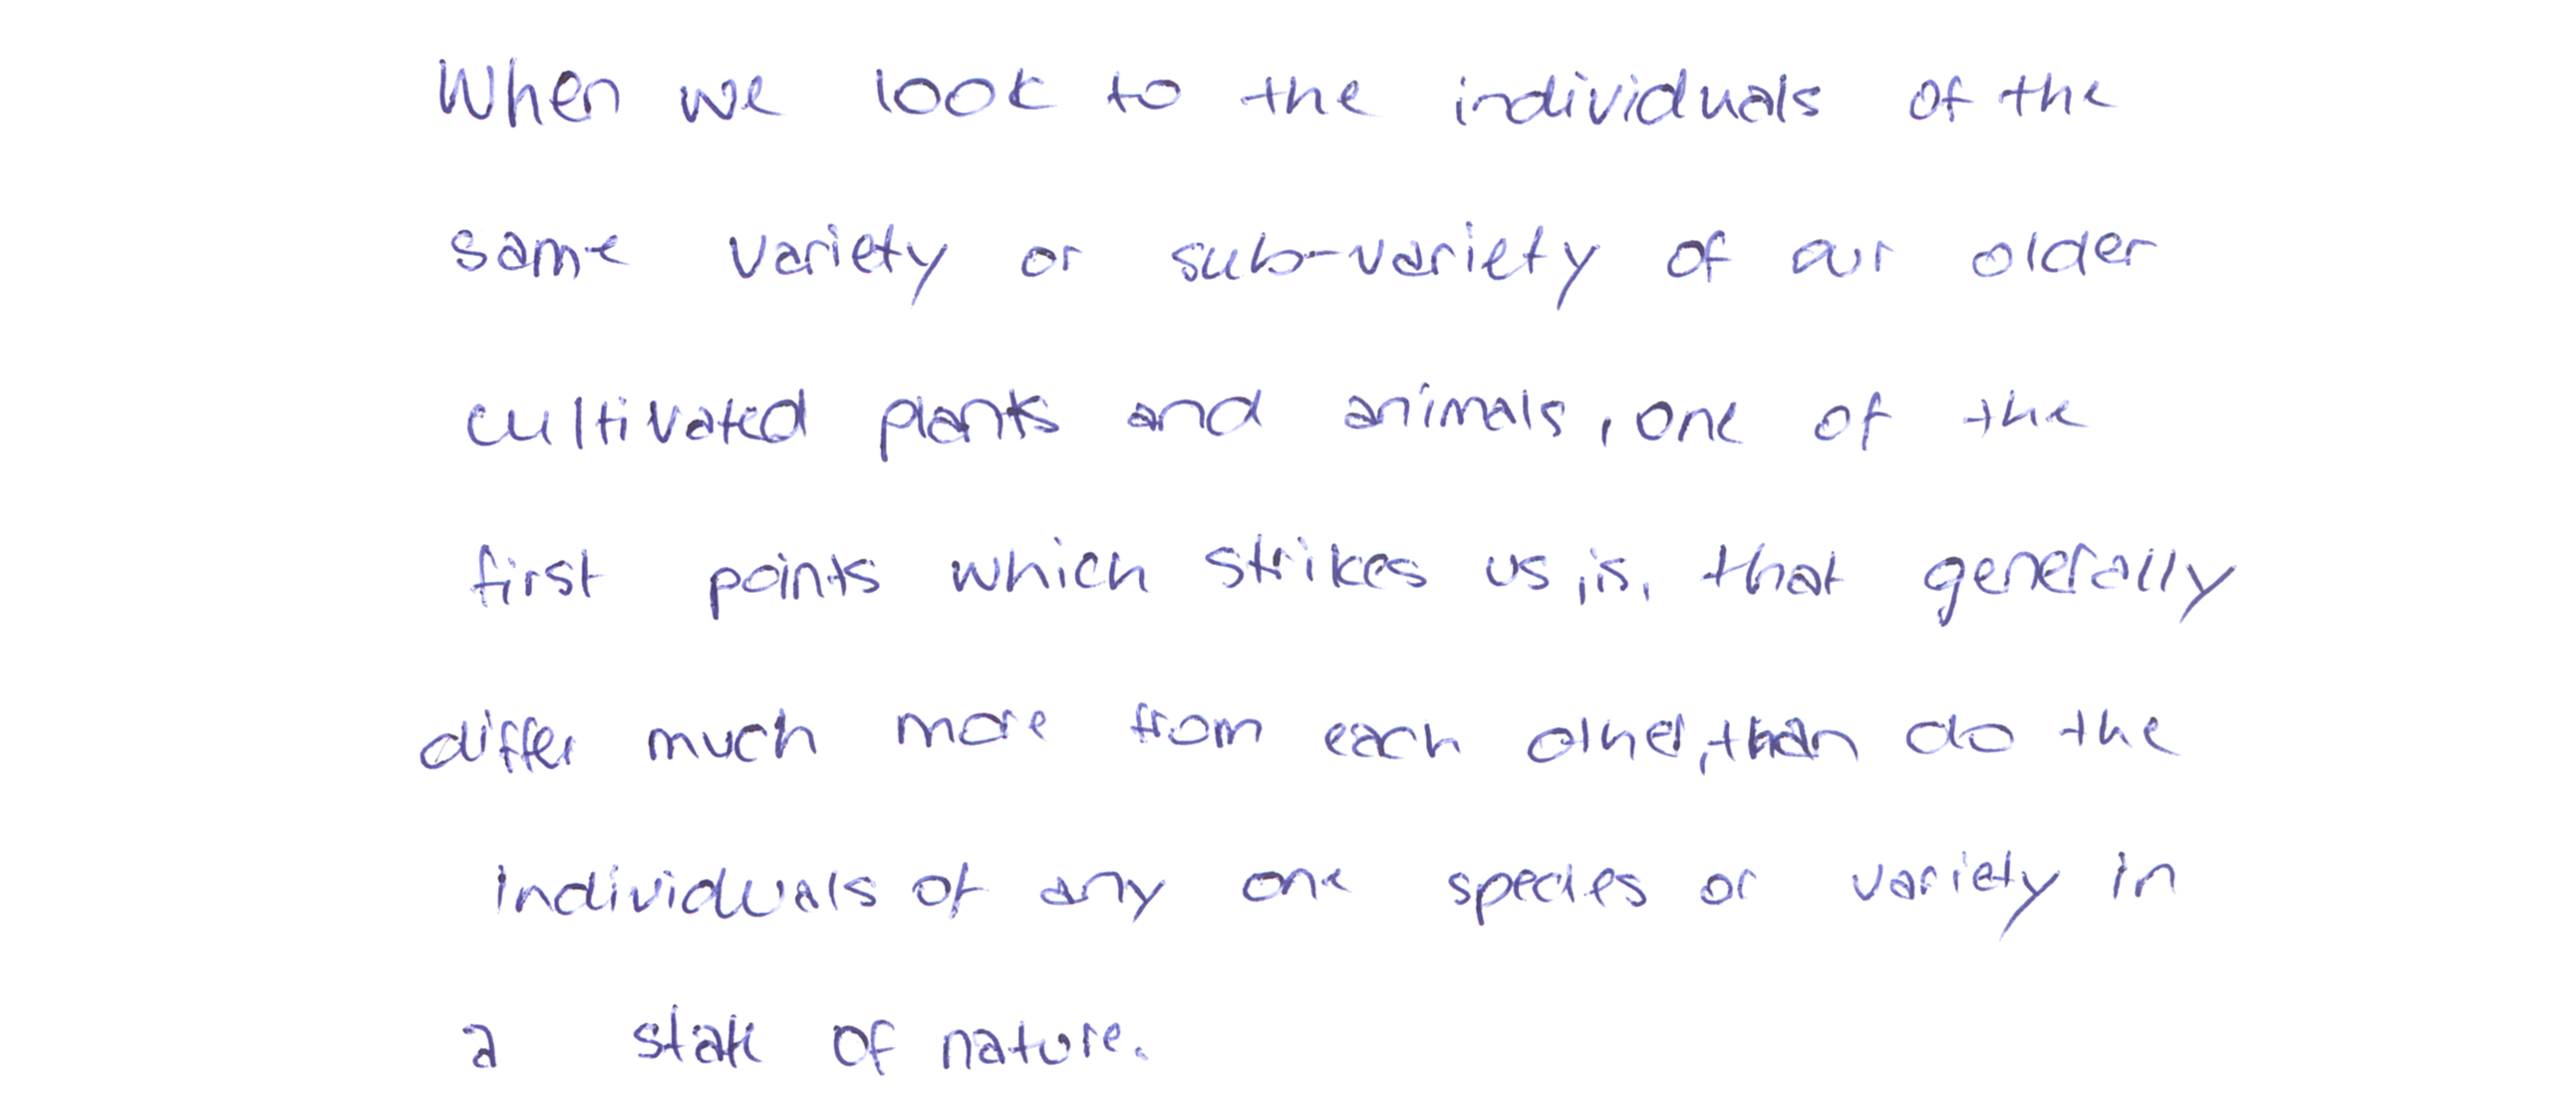 When we look to the individuals of the
same variety or sub-variety of our older
cultivated plants and animals, one of the
first points which strikes us, is, that generally
differ much more from each other, than do the
individuals of any one species or variety in
a state of nature.